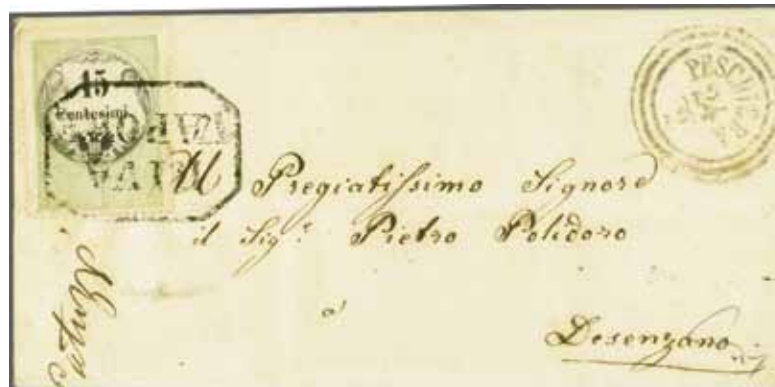 15
Centesimi
PESCHIERA
Al Pregiatissimo Signore
il Sigr. Pietro Polidoro
a
Desenzano